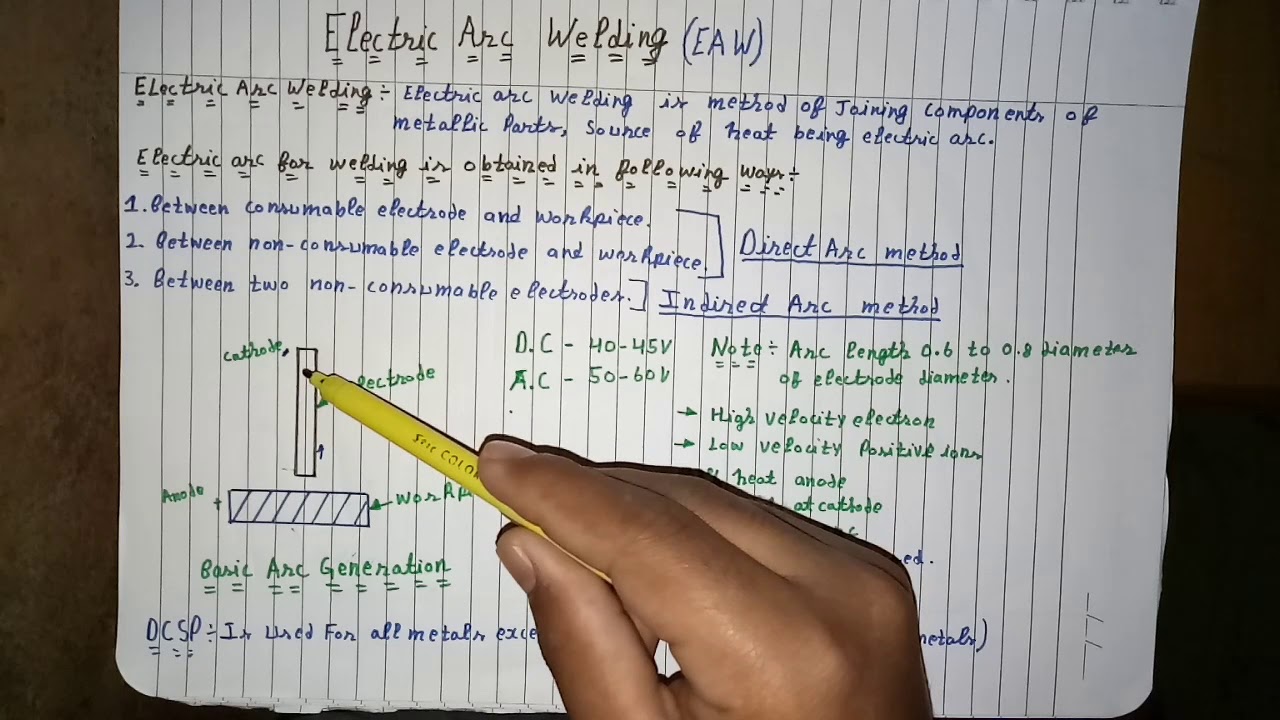 Electric Arc Welding (EAW)
Electric Arc Welding ÷ Electric arc welding is method of Joining components of
metallic Parts, Source of heat being electric arc.
Electric arc for welding is obtained in following ways ÷
1. Between consumable electrode and workpiece.
2. Between non-consumable electrode and workpiece.
Direct Arc method
3. Between two non-consumable electrodes.
Indirect Arc method
cathode
D.C - 40-45V
A.C - 50-60V
Note ÷ Arc length 0.6 to 0.8 diameter
of electrode diameter.
→ High velocity electron
→ Low velocity Positive ions
heat anode
at cathode
Anode +
Basic Arc Generation
DCSP ÷ Is used For all metals